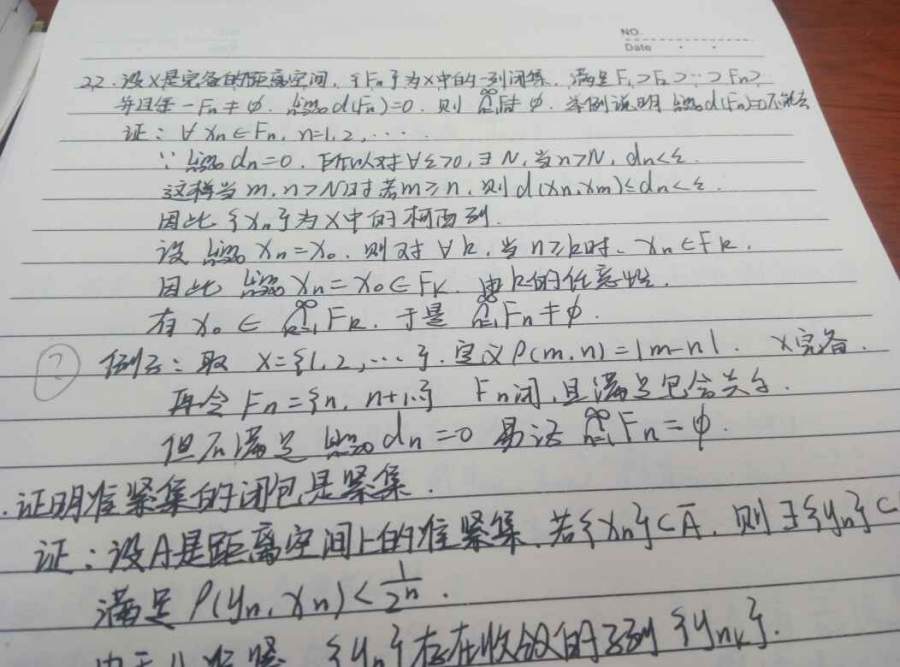 NO.
Date
22. 设X是完备的距离空间, {Fn}为X中的一列闭集, 满足F₁⊃F₂⊃…⊃Fn⊃
并且每一Fn≠φ. lim n→∞ d(Fn)=0. 则 ∞∩n=1 Fn≠φ. 举例说明 lim n→∞ d(Fn)=0不能去
证: ∀ xn∈Fn, n=1,2,….
∵ lim n→∞ dn=0, 所以对∀ε>0, ∃N, 当n>N, dn<ε.
这样当m,n>N时若m≥n, 则d(xn,xm)≤dn<ε.
因此{xn}为X中的柯西列.
设 lim n→∞ xn=x₀. 则对∀k, 当n≥k时, xn∈Fk.
因此 lim n→∞ xn=x₀∈Fk. 由k的任意性.
有 x₀∈ ∞∩k=1 Fk. 于是 ∞∩n=1 Fn≠φ.
? 例子: 取 X={1,2,…}. 定义 ρ(m,n)=|m-n|. X完备.
再令 Fn={n, n+1…} Fn闭, 且满足包含关系.
但不满足 lim n→∞ dn=0 易证 ∞∩n=1 Fn=φ.
. 证明准紧集的闭包是紧集.
证: 设A是距离空间上的准紧集. 若{xn}⊂Ā, 则∃{yn}⊂
满足 ρ(yn,xn)<1/2ⁿ.
由于 准紧. {yn}存在收敛的子列{ynk}.